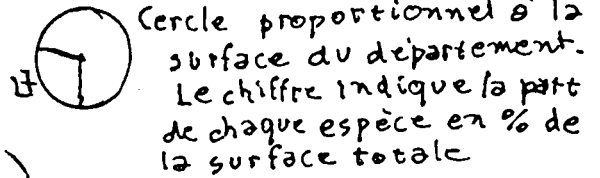 Cercle proportionnel à la
surface du département.
Le chiffre indique la part
de chaque espèce en % de
la surface totale